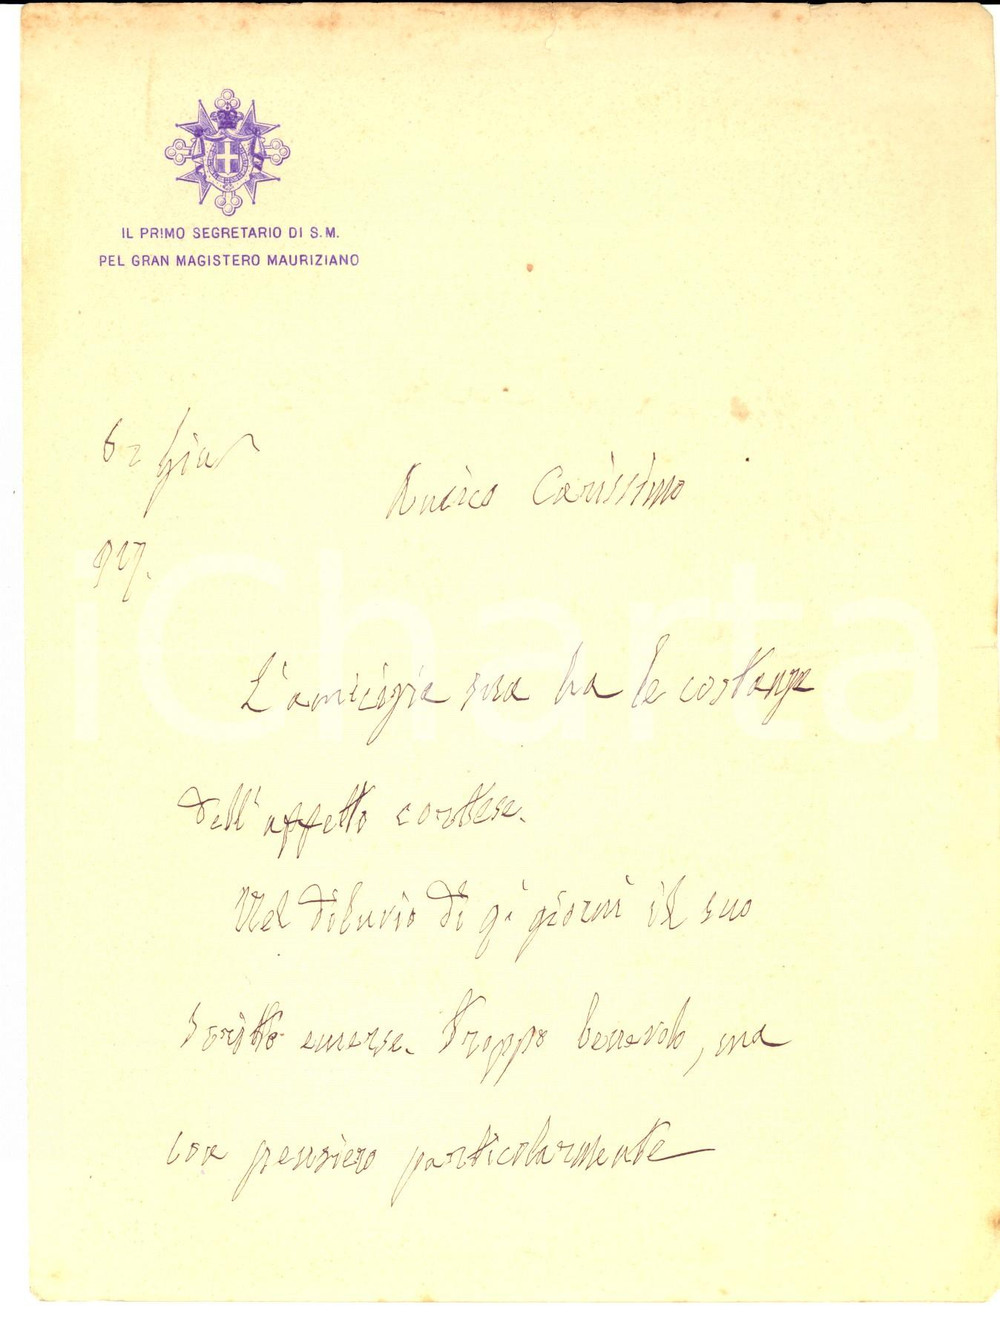 IL PRIMO SEGRETARIO DI S.M.
PEL GRAN MAGISTERO MAURIZIANO
Giu
Amico Carissimo
927.
iCharta
L'amicizia sua ha le costanze
dell'affetto cortese.
Nel diluvio di qi giorni il suo
scritto emerse. Troppo benevolo, ma
con pensiero particolarmente